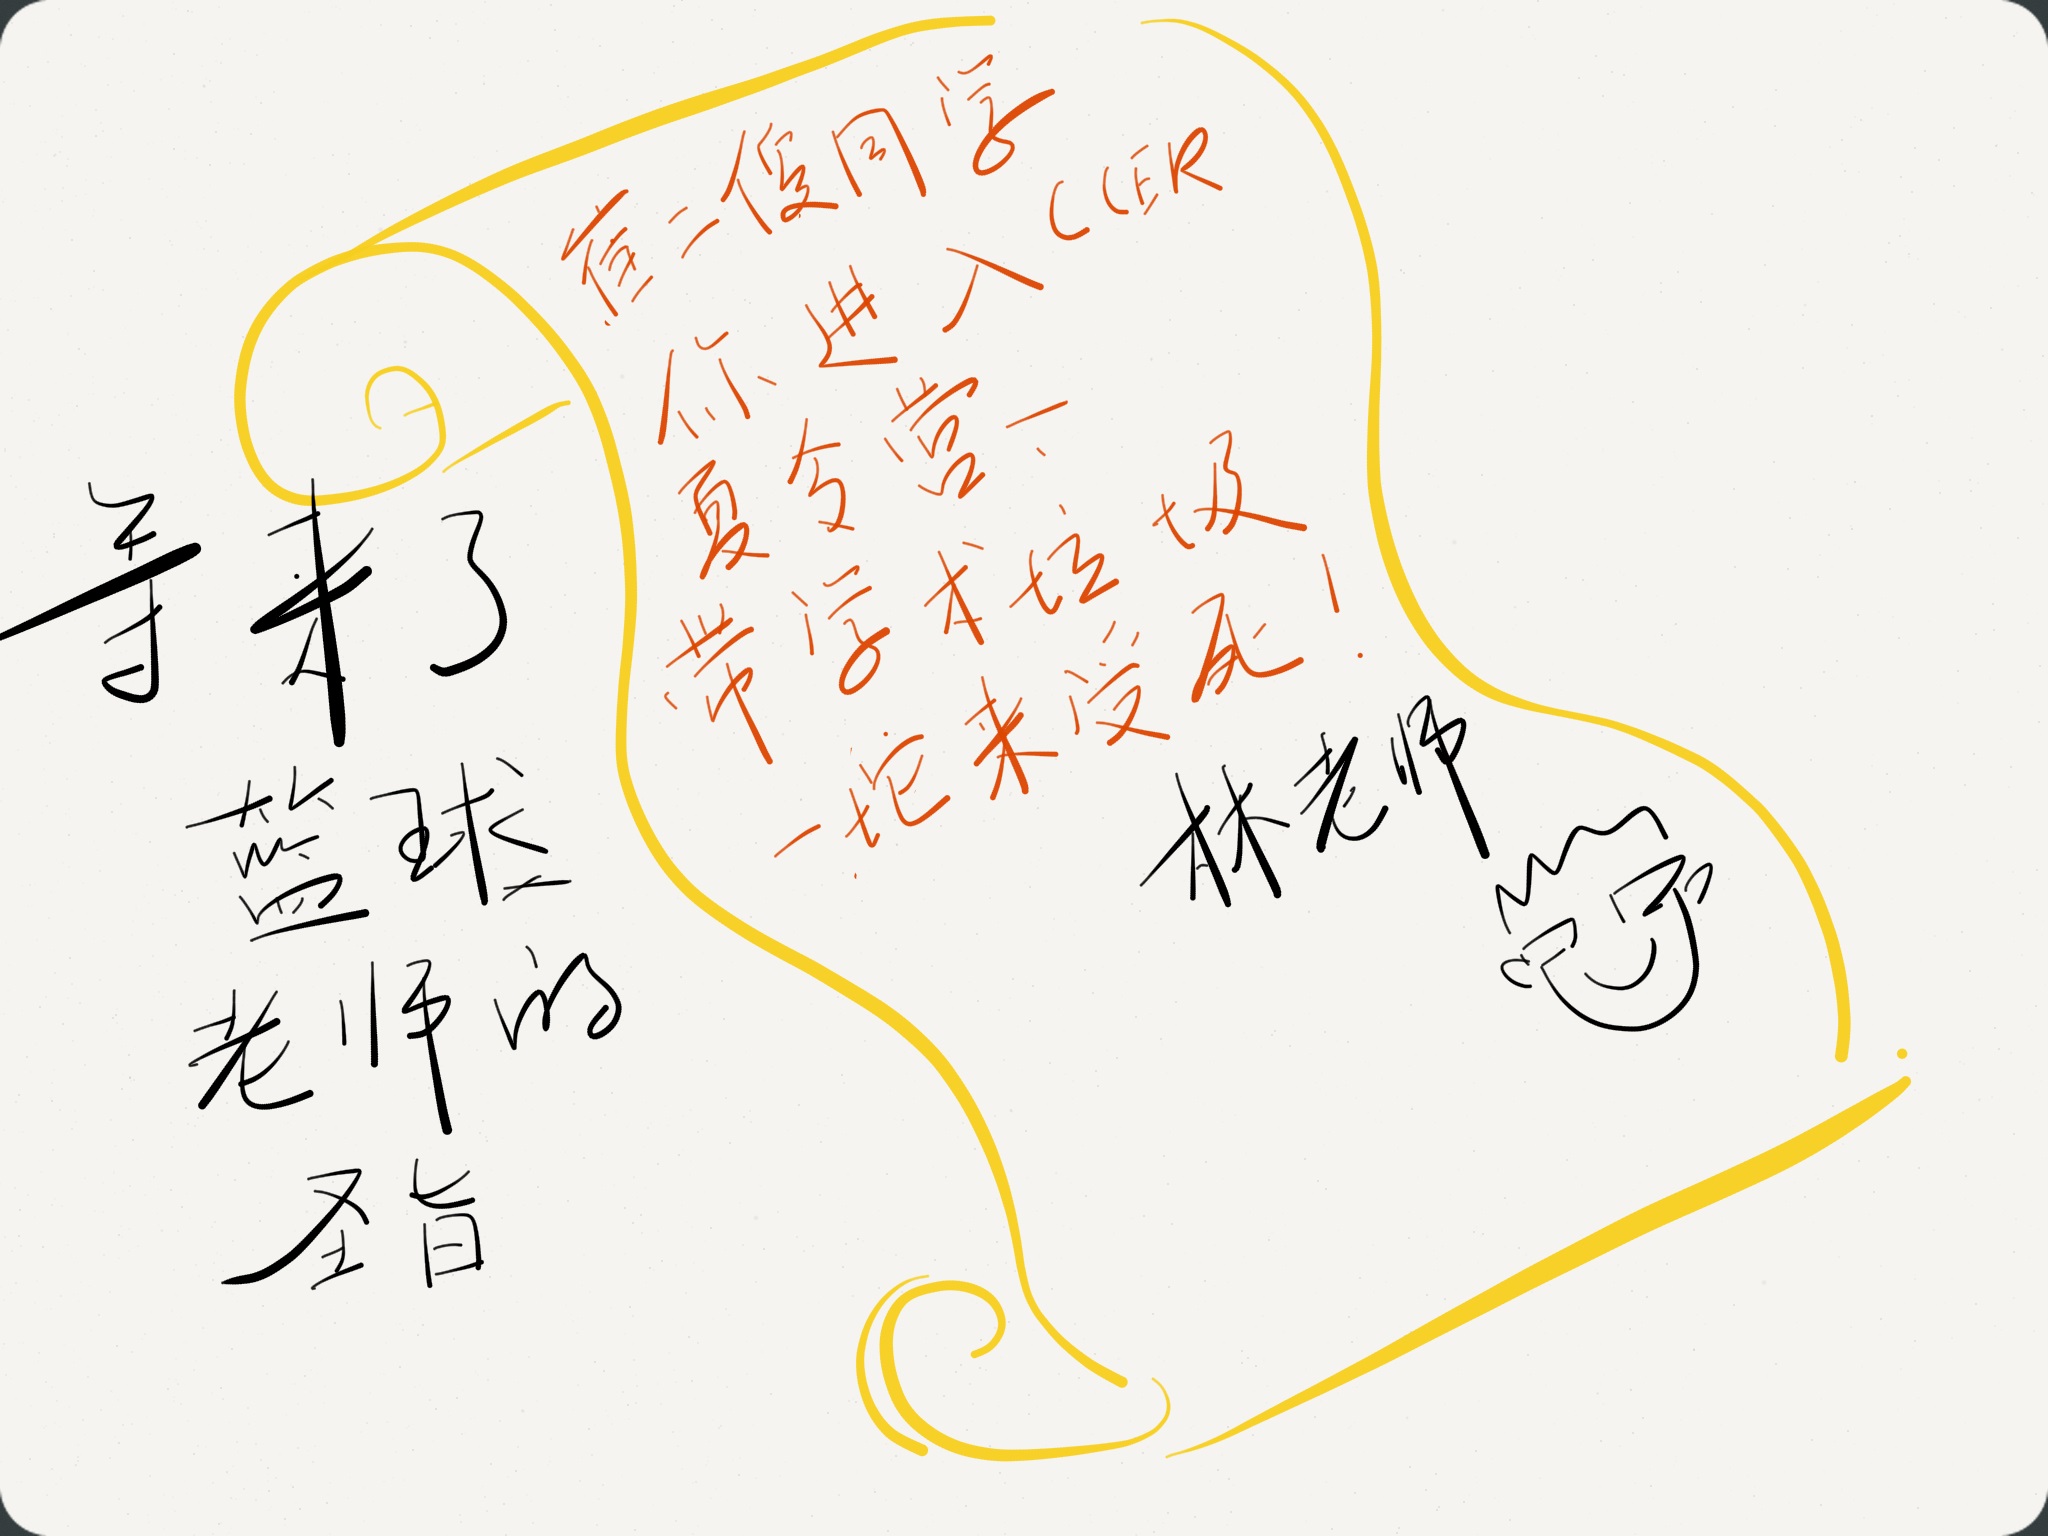 二俊同学
你进入CCER
夏令营
带学术垃圾
一坨来受死！
林老师
来了
篮球
老师的
圣旨